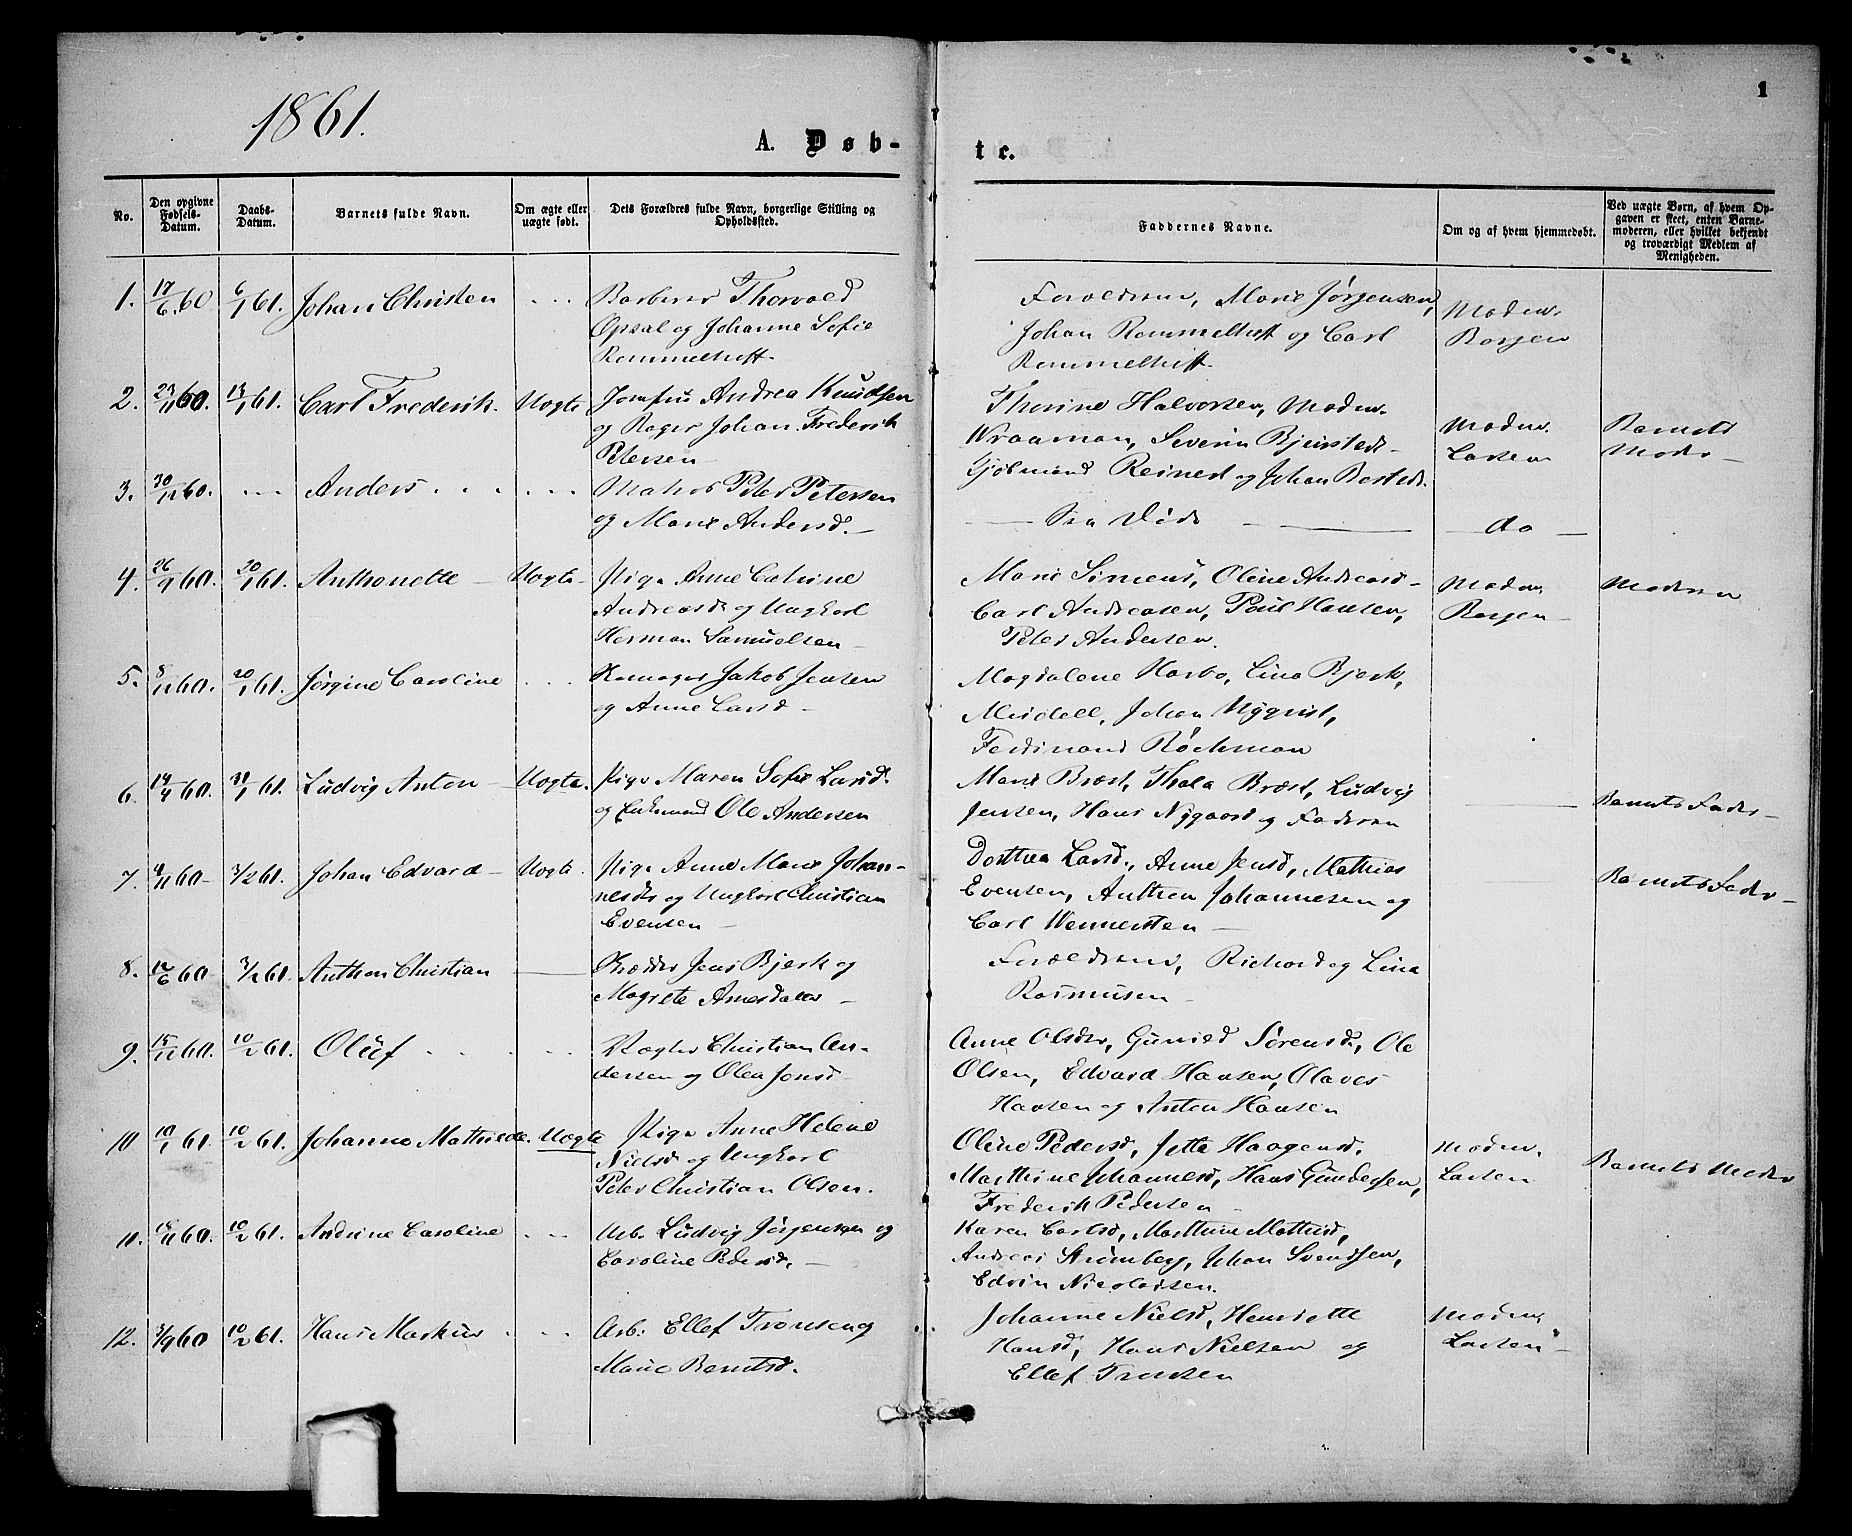 1861.
1
A. Døb-
te.
No.
Den opgivne Fødsels-Datum.
Daabs-Datum.
Barnets fulde Navn.
Om ægte eller uægte født.
Dets Forældres fulde Navn, borgerlige Stilling og Opholdssted.
Faddernes Navne.
Om og af hvem hjemmedøbt.
Ved uægte Børn, af hvem Opgaven er skeet, enten Barnemoderen, eller hvilket bekjendt og troværdigt Medlem af Menigheden.
1. 17/6 60 6/1 61. Johan Christen
Barberer Thorvald
Opsal og Johanne Sofie
Rommelhoft.
Forældrene, Marie Jørgensen,
Johan Rommelhoft og Carl
Rommelhoft.
Madm.
Borgen
2. 23/11 60. 13/1 61. Carl Frederik. Uægte
Jomfru Andrea Knudsen
og Bager Johan Frederik
Petersen
Thorine Halvorsen, Madm.
Wraaman, Severin Bjerstedt
Reinert og Johan Berstedt.
Madm.
Larsen
Barnets
Moder
3. 30/11 60. Anders
Matros Peter Petersen
og Marie Andersd.
Do
4. 26/9 60. 20/1 61. Anthonette Uægte
Pige Anne Catrine
Andreasdr og Ungkarl
Herman Samuelsen
Marie Simensd, Oline Andreasd
Carl Andreasen, Paul Hansen,
Peter Andersen.
Madm.
Borgen
Moderen
5. 8/11 60. 20/1 61. Jørgine Caroline
Jakob Jensen
og Anne Larsd
Magdalene Harbo, Lina Bjerk,
Meidell, Johan Nyqvist,
Ferdinand Röchman
6. 14/9 60. 31/1 61. Ludvig Anton Uægte.
Pige Maren Sofie Larsd.
og Enkemand Ole Andersen
Marie Bræst, Thala Bræst, Ludvig
Jensen, Hans Nygaard og Faderen
Barnets Fader
7. 4/11 60 3/2 61. Johan Edvard Uægte.
Pige Anne Marie Johan-
nesdr og Ungkarl Christian
Evensen
Dorthea Larsd., Anne Jensd, Mathias
Evensen, Anthon Johannesen og
Carl Wennersten
Barnets Fader
8. 12/6 60 3/2 61. Anthon Christian
Jens Bjerk og
Magrete Amesdatter
Forældrene, Richard og Lina
Rasmusen
9. 15/11 60. 10/2 61. Oluf
Christian An-
dersen og Olea Jonsd
Anne Olsdtr, Gunild Sørensd., Ole
Olsen, Edvard Hansen, Olaves
Hansen og Anton Hansen
10 10/1 61. 10/2 61. Johanne Mathilde. Uægte
Pige Anne Helene
Nielsd og Ungkarl
Peter Christian Olsen.
Oline Pedersd, Jette Haagensd.
Marthine Johannesd, Hans Gundersen,
Frederik Pedersen
Madm.
Larsen
Barnets Moder
11. 18/11 60. 10/2 61. Andrine Caroline
Arb. Ludvig Jørgensen og
Caroline Pedersd.
Karen Carlsd, Marthine Mathisd,
Andreas Strömberg, Johan Svendsen,
Edvin Nicolaisen.
12. 3/9 60 10/2 61. Hans Markus
Arb. Ellef Tronsen og
Marie Berntsd.
Johanne Nielsd, Henriette
Hansd, Hans Nielsen og
Ellef Tronsen
Madm.
Larsen